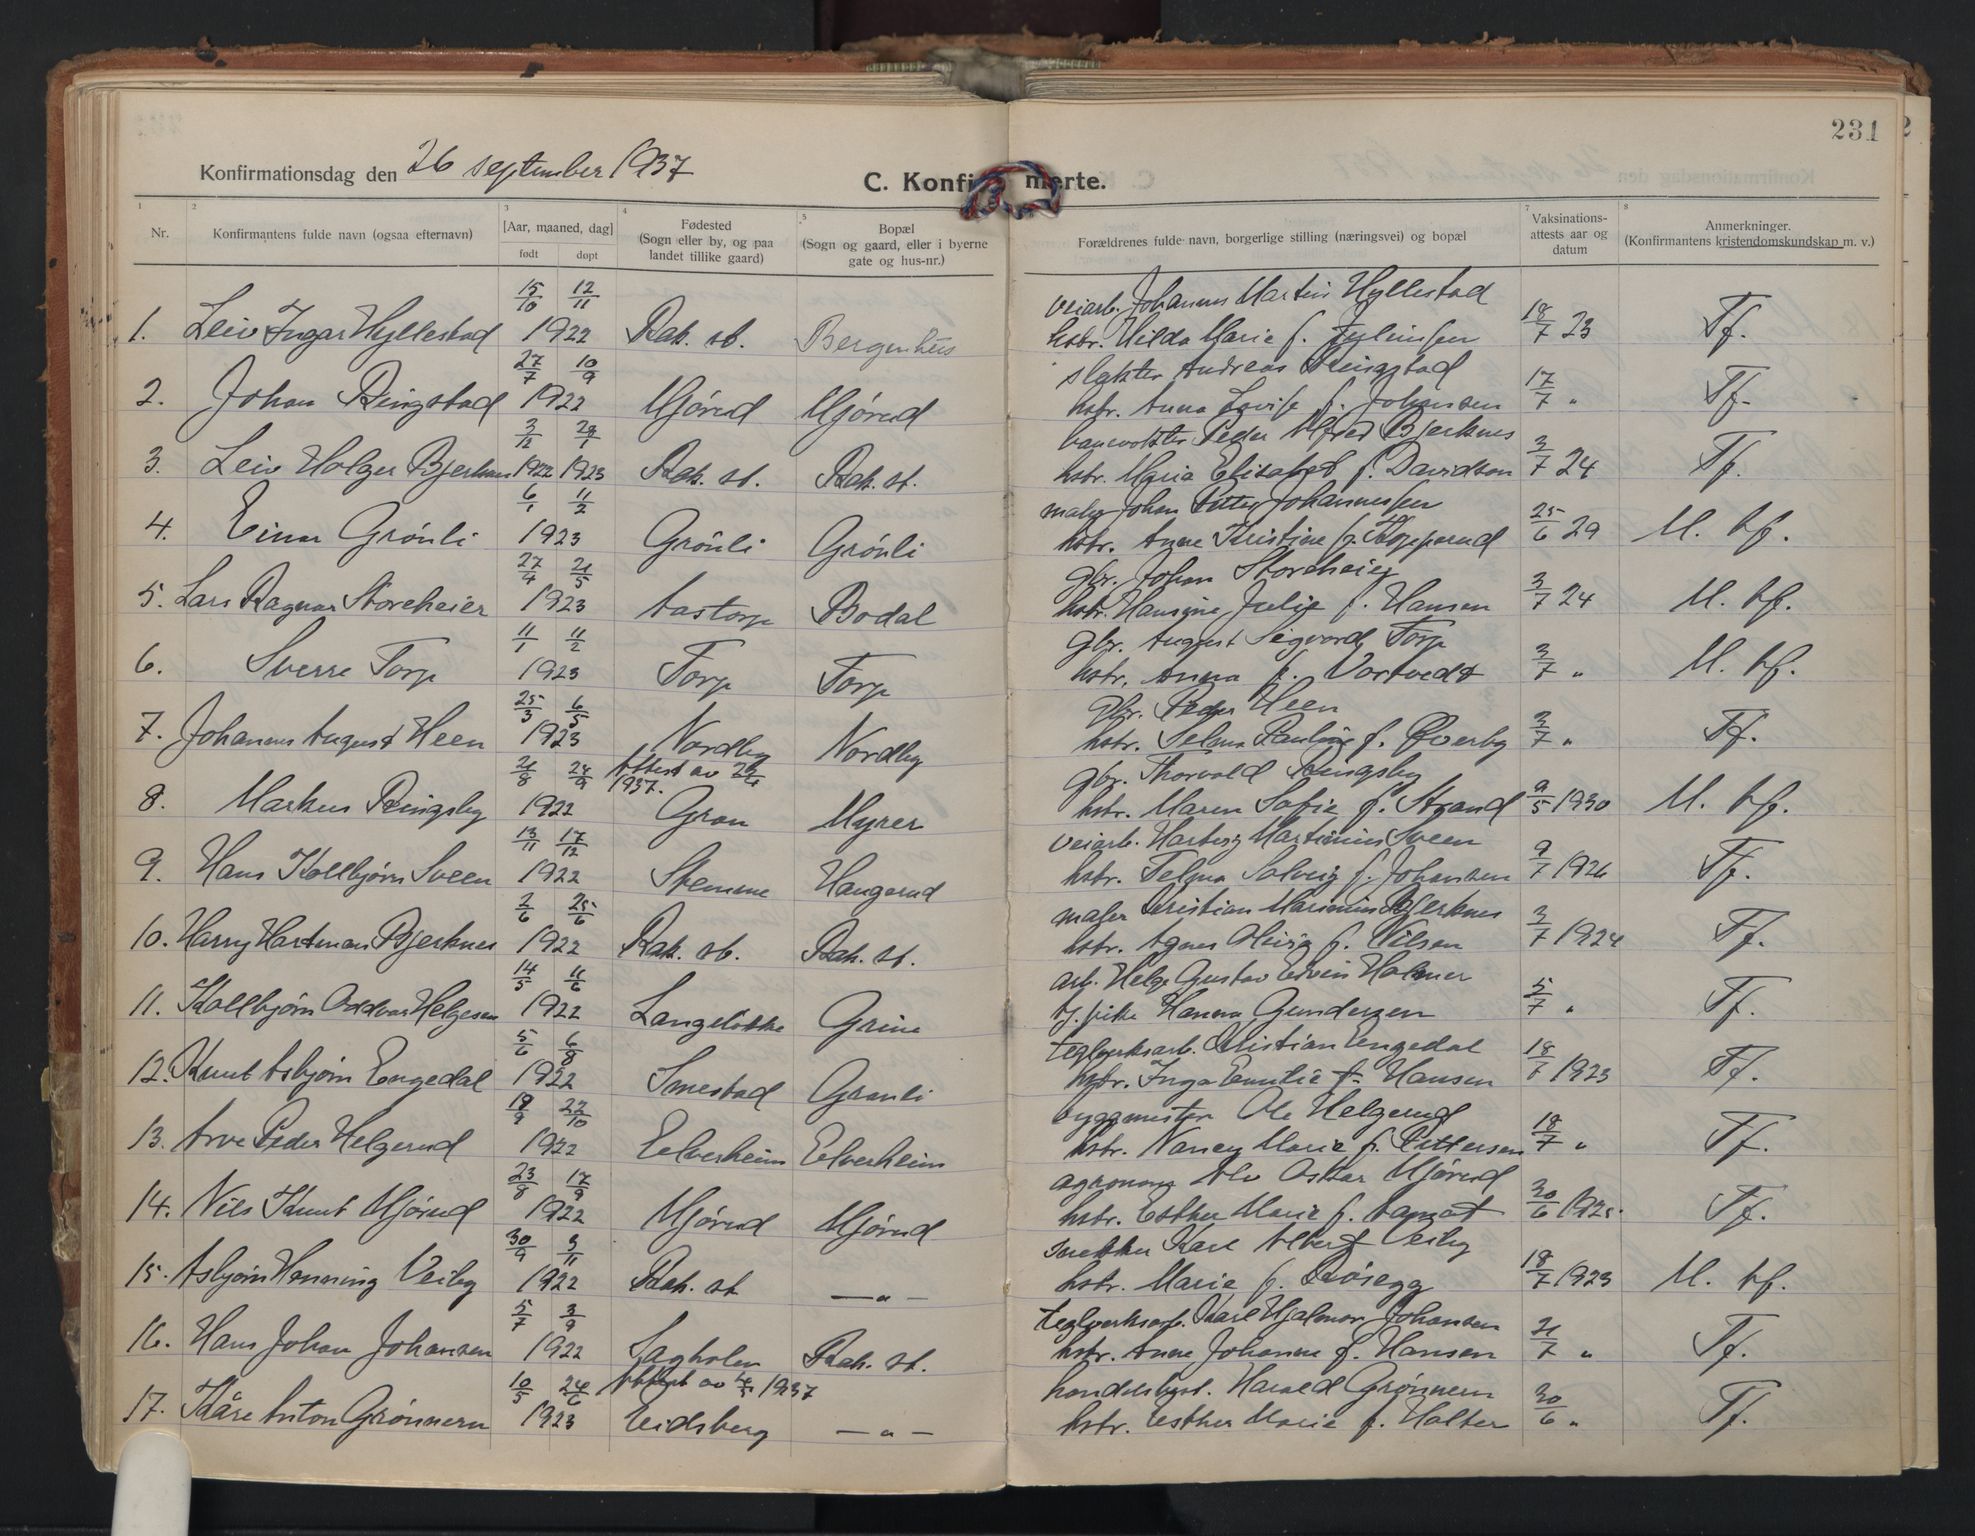 231
Konfirmationsdag den 26 september 1937
C. Konfirmerte.
1 2 3 4 5 7 8
Nr. Konfirmantens fulde navn (ogsaa efternavn) [Aar, maaned, dag] født døpt Fødested (Sogn eller by, og paa landet tillike gaard) Bopæl (Sogn og gaard, eller i byerne gate og hus-nr.) Forældrenes fulde navn, borgerlige stilling (næringsvei) og bopæl Vaksinations-attests aar og datum Anmerkninger. (Konfirmantens kristendomskundskap m. v.)
15/10 12/11 veiarb. Johannes Martin Hyllestad
1. Leiv Ingar Hyllestad 1922 Rak. st. Bergenhus hstr. Hilda Marie f. Juliussen 18/7 23 Tf.
27/7 10/9 slakter Andreas Ringstad
2. Johan Ringstad 1922 Mjørud Mjørud hstr. Anna Lovise f. Johansen 17/7 " Tf.
3/12 28/1 banevokter Peder Alfred Bjerknes
3. Leiv Holger Bjerknes 1922 1923 Rak. st. Rak. st. hstr. Maria Elisabet f. Davidson 3/7 24 Tf.
6/1 11/2 maler Johan Petter Johannessen
4. Einar Grønli 1923 Grønli Grønli hstr. Anne Kristine f. 25/6 29 M. tf.
27/4 21/5 gbr. Johan Storeheier
5. Lars Ragnar Storeheier 1923 Aastorp Bodal hstr. Hansine Julie f. Hansen 3/7 24 M. tf.
11/1 11/2 gbr. August Sigvard Torp
6. Sverre Torp 1923 Torp Torp hstr. Anna f. Vortvedt 3/7 " M. tf.
25/3 6/5 gbr. Peder Heen
7. Johannes August Heen 1923 Nordby Nordby hstr. Selma Pauline f. Øverby 3/7 " Tf.
21/8 24/9 Attest av 1937. gbr. Thorvald Ringsby
8. Markus Ringsby 1922 Gran Myrer hstr. Maren Sofie f. Strand 9/5 1930 M. tf.
13/11 17/12 veiarb. Hartvig Martinius Sveen
9. Hans Kolbjørn Sveen 1922 Stemme Haugerud hstr. Telma Solveig f. Johansen 9/7 1926 Tf.
2/6 25/6 maler Kristian Marinius Bjerknes
10. Harry Hartman Bjerknes 1922 Rak. st. Rak. st. hstr. Agnes f. Nilsen 3/7 1924 Tf.
14/5 11/6 arb. Helge Gustav Edvin Holmer
11. Kollbjørn Oddvar Helgesen 1922 Langeløkke Grine tj. pike Hanna Gundersen 5/7 " Tf.
5/6 6/8 teglverksarb. Kristian Engedal
12. Knut Asbjørn Engedal 1922 Smestad Granli hstr. Inga Emilie f. Hansen 18/7 1923 Tf.
19/9 22/10 byggmester Ole Helgerud
13. Arve Peder Helgerud 1922 Eelverheim Eelverheim hstr. Nancy Marie f. Pettersen 18/7 " Tf.
23/8 17/9 agronom Alv Oskar Mjørud
14. Nils Knut Mjørud 1922 Mjørud Mjørud hstr. Esther Marie f. Aamot 30/6 1925. Tf.
30/9 5/11 snekker Karl Albert Veiby
15. Asbjørn Henning Veiby 1922 Rak. st — " — hstr. Marie f. Røsegg 18/7 1923 M. tf.
5/7 3/9 teglverksarb. Karl Hjalmar Johansen
16. Hans Johan Johansen 1922 Sagholen Rak. st. hstr. Anne Johanne f. Hansen 21/7 " Tf.
10/5 24/6 Attest av 1937 handelsbest. Harald Grønnern
17. Kåre Anton Grønnern 1923 Eidsberg — " — hstr. Esther Marie f. Halter 30/6 " Tf.